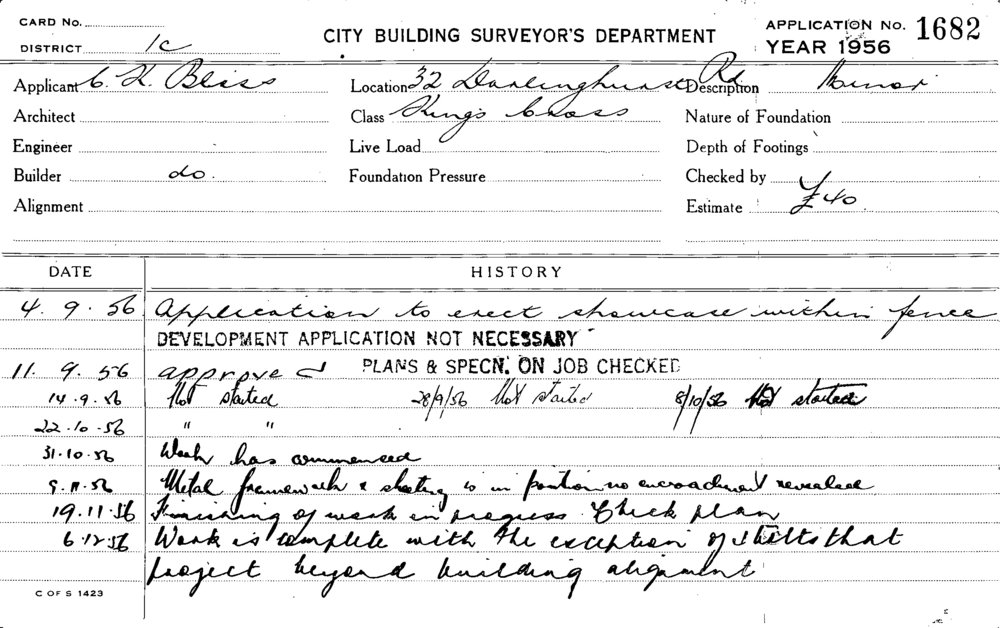 CARD No.
DISTRICT 1c
CITY BUILDING SURVEYOR'S DEPARTMENT
APPLICATION No. 1682
YEAR 1956
Applicant C. K. Bliss
Location 32 Darlinghurst Rd
Description Minor
Architect
Class Kings Cross
Nature of Foundation
Engineer
Live Load
Depth of Footings
Builder do.
Foundation Pressure
Checked by
Alignment
Estimate £40
DATE HISTORY
4. 9. 56 Application to erect showcase within fence
DEVELOPMENT APPLICATION NOT NECESSARY
11. 9. 56 approved PLANS & SPECN. ON JOB CHECKED
14.9.56 Not started 28/9/56 Not started 8/10/56 Not started
22.10.56 " "
31.10.56 Work has commenced
9.11.56 Metal framework & sheeting is in position no encroachment revealed
19.11.56 Finishing of work in progress Check plan
6.12.56 Work is complete with the exception of that
project beyond building alignment
C OF S 1423